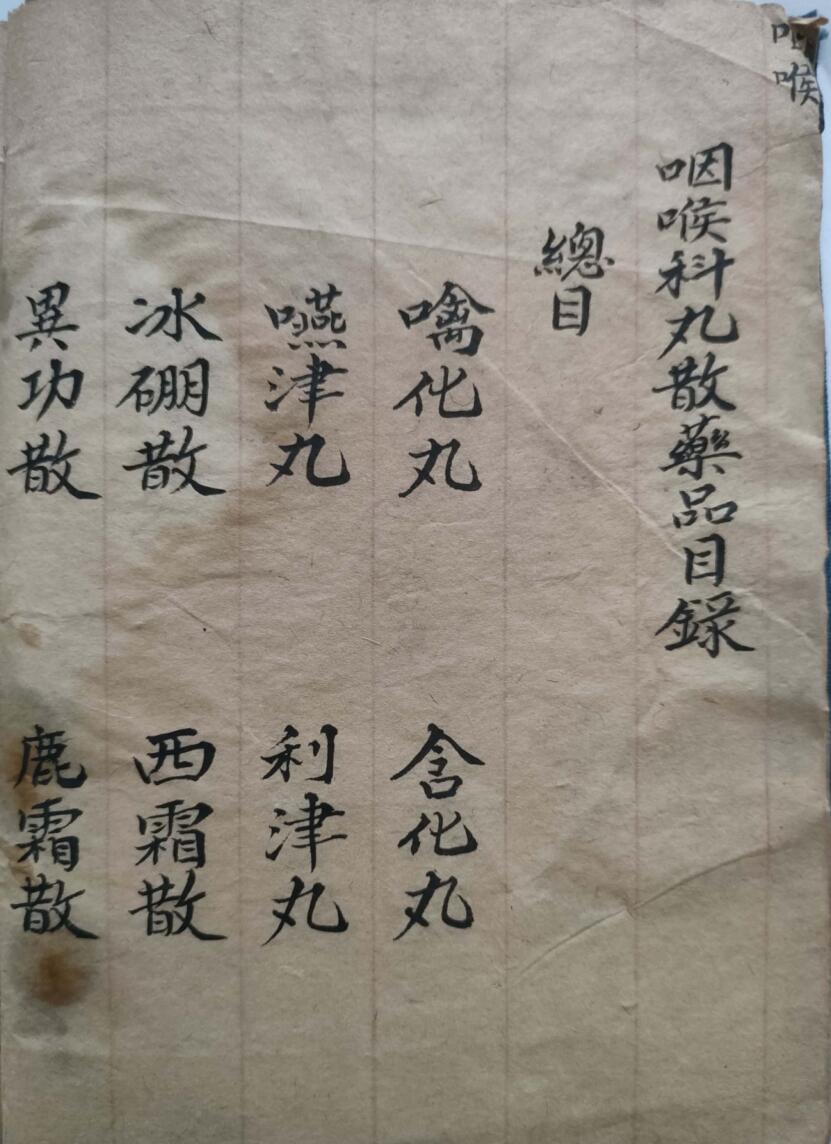 咽喉
咽喉科丸散藥品目錄
總目
噙化丸 含化丸
嚥津丸 利津丸
冰硼散 西霜散
異功散 鹿霜散